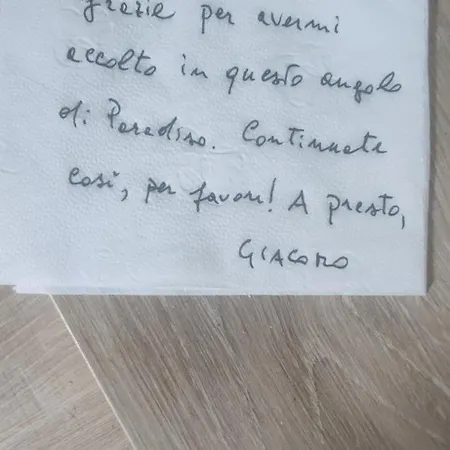 grazie per avermi
accolto in questo angolo
di Paradiso. Continuate
così, per favore! A presto,
GIACOMO